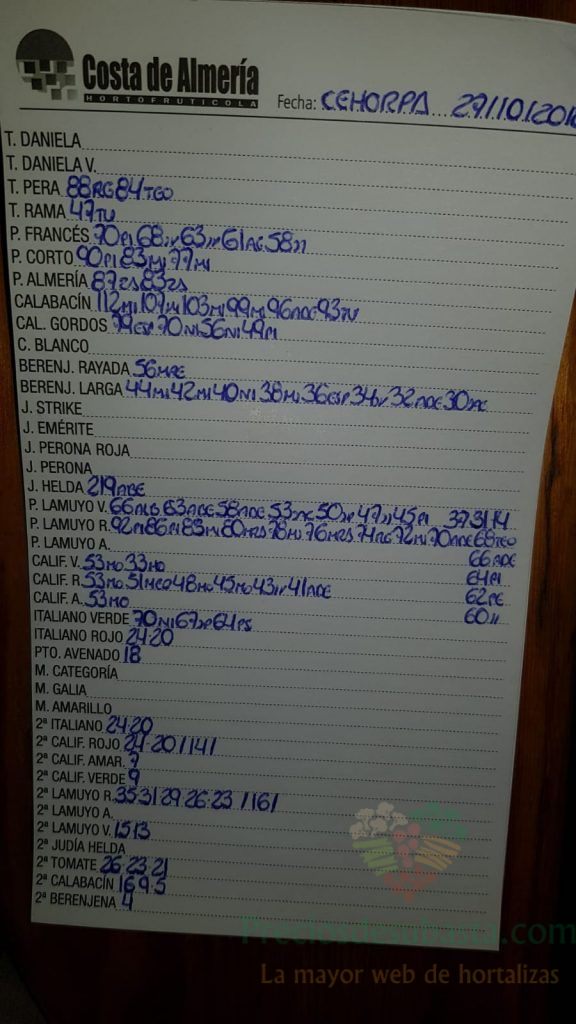 Costa de Almería
HORTOFRUTICOLA
Fecha: CEHORPA 27/10/201
T. DANIELA
T. DANIELA V.
T. PERA 88RG 84TGO
T. RAMA 47TU
P. FRANCÉS 70PI 68JV 63JV 61AG 58JJ
P. CORTO 90PI 83MJ 77MI
P. ALMERÍA 87ZS 83ZS
CALABACÍN 112MI 107MI 103MI 99MI 96ADE 93TU
CAL. GORDOS 79ESP 70NI 56NI 49PI
C. BLANCO
BERENJ. RAYADA 56MRE
BERENJ. LARGA 44MI 42MI 40NI 38MI 36ESP 34 32ADE 30
J. STRIKE
J. EMÉRITE
J. PERONA ROJA
J. PERONA
J. HELDA 219ADE
P. LAMUYO V. 66 63ADE 58ADE 53 50 47JJ 45PI 37 31
P. LAMUYO R. 92PI 86PI 83MI 80MRS 78MJ 76MRS 74AG 72MI 70ADE 68TGO
P. LAMUYO A. 66ADE
CALIF. V. 53MO 33MO 64PI
CALIF. R. 53MO 51MEQ 48MO 45MO 43JV 41ADE 62PE
CALIF. A. 53MO 60JJ
ITALIANO VERDE 70NI 67JP 64PS
ITALIANO ROJO 24-20
PTO. AVENADO 18
M. CATEGORÍA
M. GALIA
M. AMARILLO
2ª ITALIANO 24-20
2ª CALIF. ROJO 24-20 /14/
2ª CALIF. AMAR. 7
2ª CALIF. VERDE 9
2ª LAMUYO R. 35 31 29 26-23 /16/
2ª LAMUYO A.
2ª LAMUYO V. 15 13
2ª JUDÍA HELDA
2ª TOMATE 26-23-21
2ª CALABACÍN 16 9-5
2ª BERENJENA 4
Preciosdesubasta.com
La mayor web de hortalizas